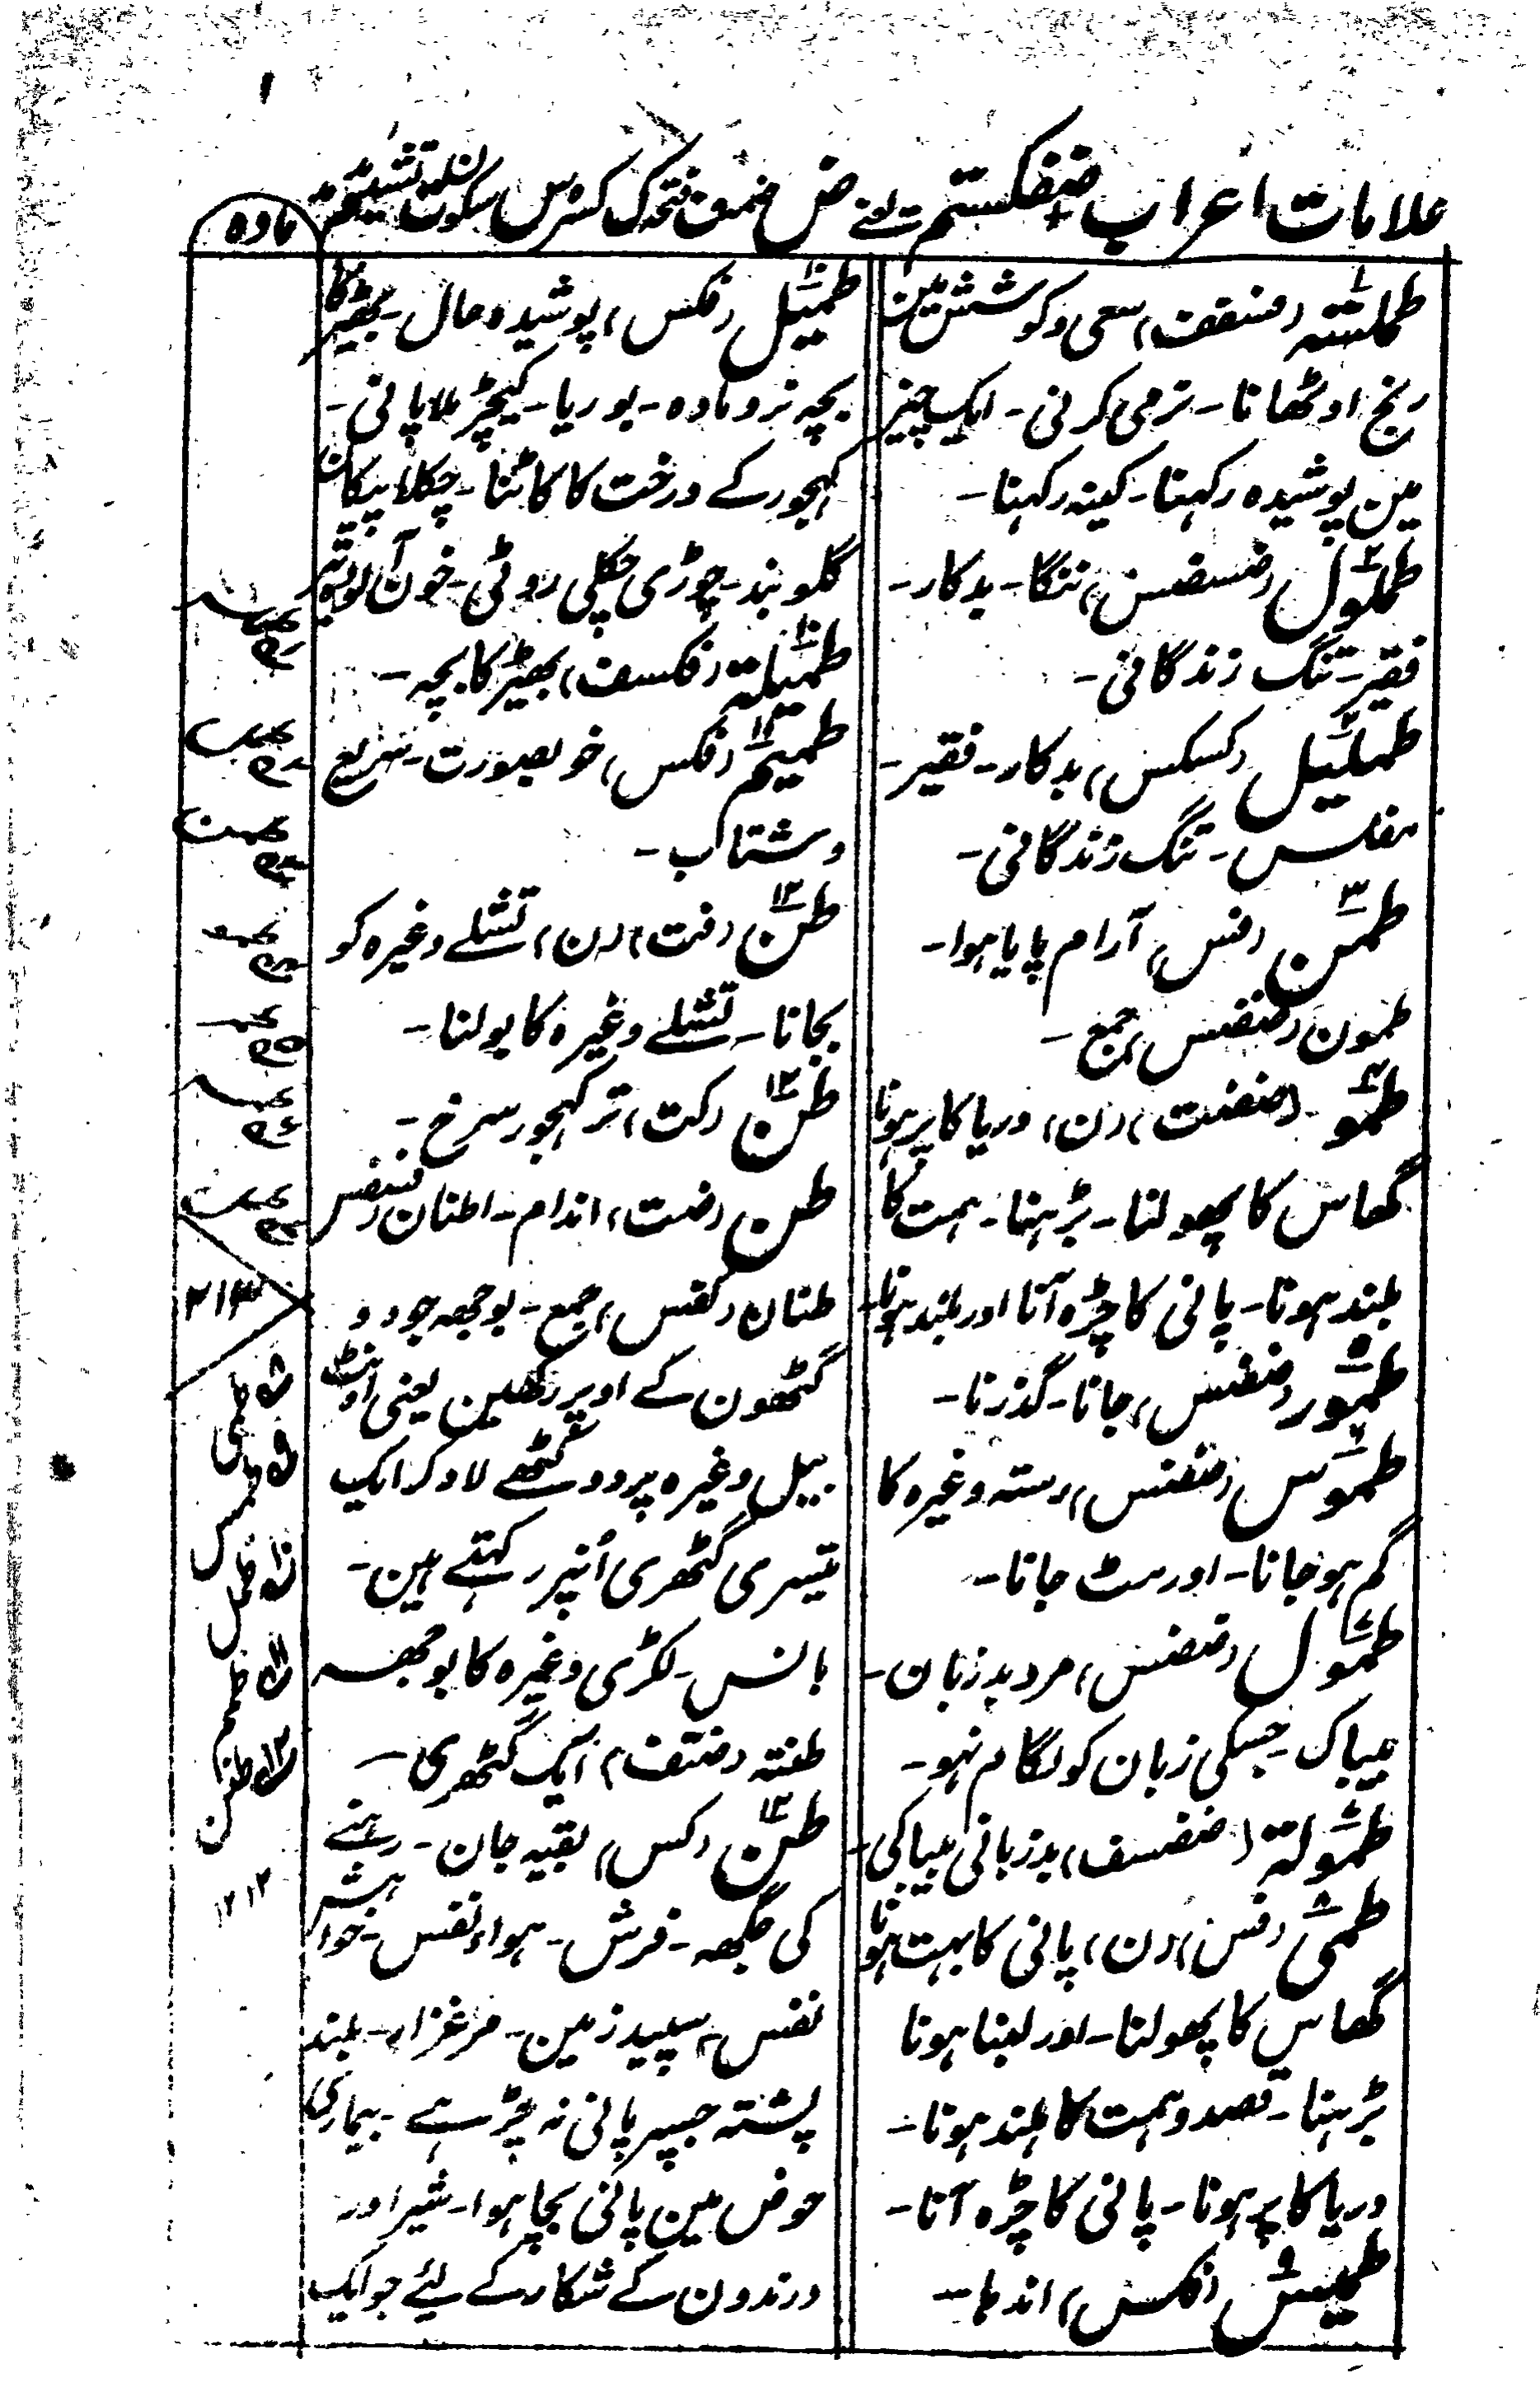 علامات اعراب ضفکستم یعنے ض ضمہ ف فتحہ ک کسرہ س سکون ت تشدید
مادہ
طملسۃ (فسففت) سعی و کوشش مین
رنج اوٹھانا۔ نرمی کرنی۔ ایک چیز
مین پوشیدہ رکہنا۔ کینہ رکہنا۔
طملول (ضسضس) ننگا۔ بدکار۔
فقیر۔ تنگ زندگانی۔
طملیل (کسکس) بدکار۔ فقیر۔
مفلس۔ تنگ زندگانی۔
طمن (فس) آرام پایا ہوا۔
طمون (ضضس) جمع۔
طمو (ضضت) (ن) دریا کا پر ہونا
گھاس کا پھولنا۔ بڑہنا۔ ہمت کا
بلند ہونا۔ پانی کا چڑہ آنا اور بلند ہونا۔
طمور (ضضس) جانا۔ گذرنا۔
طموس (ضضس) رستہ وغیرہ کا
گم ہو جانا۔ اور مٹ جانا۔
طمول (ضضس) مرد بد زبان۔
بیباک۔ جسکی زبان کو لگام نہو۔
طمولۃ (ضضسف) بد زبانی بیباکی۔
طمی (فس) (ن) پانی کا بہت ہونا
گھاس کا پھولنا۔ اور لمبا ہونا
بڑہنا۔ قصد و ہمت کا بلند ہونا۔
دریا کا پر ہونا۔ پانی کا چڑہ آنا۔
طمیس (فکس) اندہا۔
طمیل (فکس) پوشیدہ حال۔ بھیڑ کا
بچہ نر و مادہ۔ بوریا۔ کیچڑ ملا پانی۔
کہجور کے درخت کا کاٹنا۔ چکلا پیکان
گلوبند۔ چوڑی چکلی روٹی۔ خون آلودہ تیر
طمیلۃ (فکسف) بھیڑ کا بچہ۔
طمیم (فکس) خوبصورت۔ سریع
و شتاب۔
طن (فت) (ن) تشلے وغیرہ کو
بجانا۔ تشلے وغیرہ کا بولنا۔
طن (کت) تر کہجور سرخ۔
طن (ضت) اندام۔ اطنان (فسفس)
طنان (کفس) جمع۔ بوجھہ جو دو
گٹھون کے اوپر رکھین یعنی اونٹ
بیل وغیرہ پر دو گٹھے لاد کر ایک
تیسری گٹھری اُنپر رکہتے ہین۔
بانس۔ لکڑی وغیرہ کا بوجھہ
طنتہ (ضتف) ایک گٹھری۔
طن (کس) بقیہ جان۔ رہنے
کی جگھہ۔ فرش۔ ہواء نفس۔ خواہش
نفس۔ سپید زمین۔ مرغزار۔ بلند
پشتہ جسپر پانی نہ چڑہے۔ بیماری
حوض مین پانی بچا ہوا۔ شیر اور
درندون کے شکار کے لیئے جو ایک
طمی
طمس
طمل
طم
طن